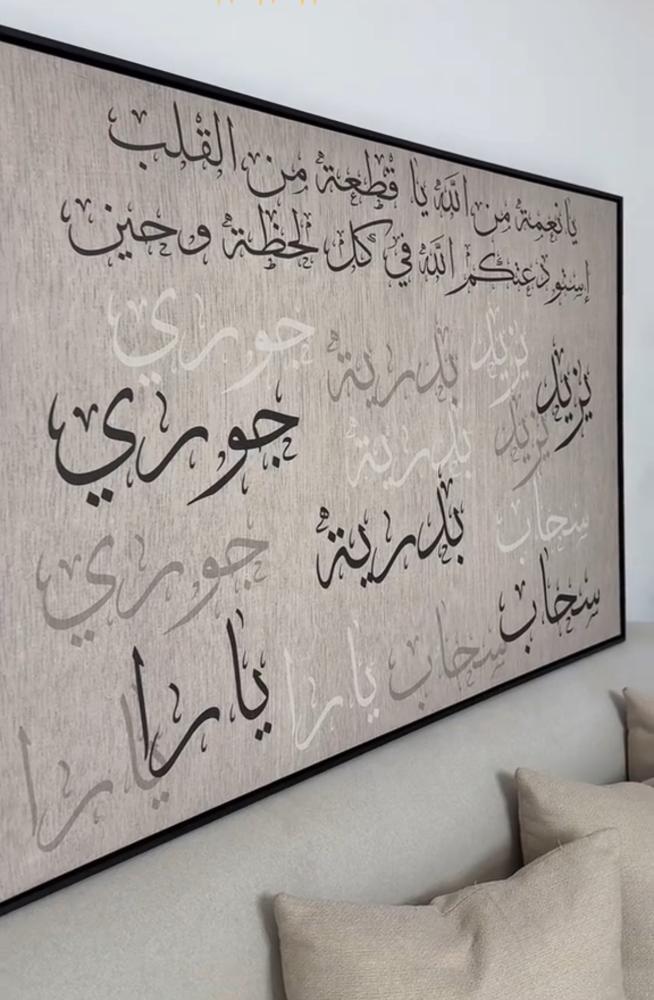 يا نعمة من الله يا قطعة من القلب
إستودعتكم الله في كل لحظة وحين
يزيد بدرية جوري
يزيد
يزيد بدرية جوري
سحاب بدرية جوري
سحاب
سحاب يارا يارا
يارا